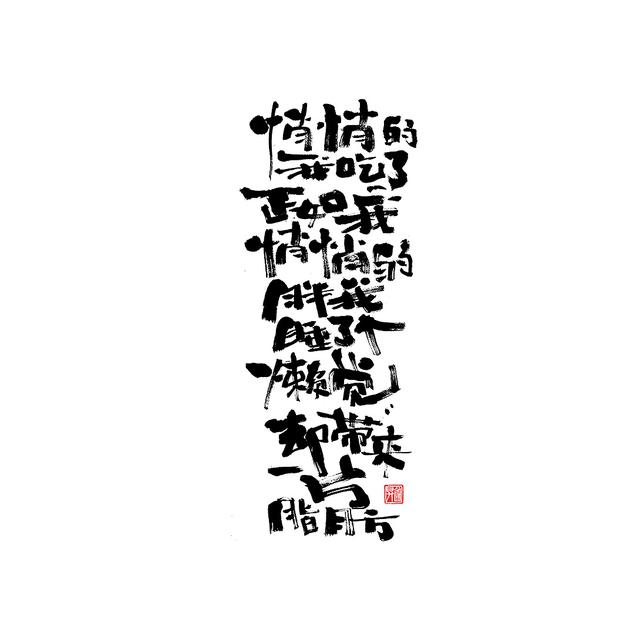 悄悄的
我吃了
正如我
悄悄的
胖我
睡了个
懒觉
却带来
一片
脂肪